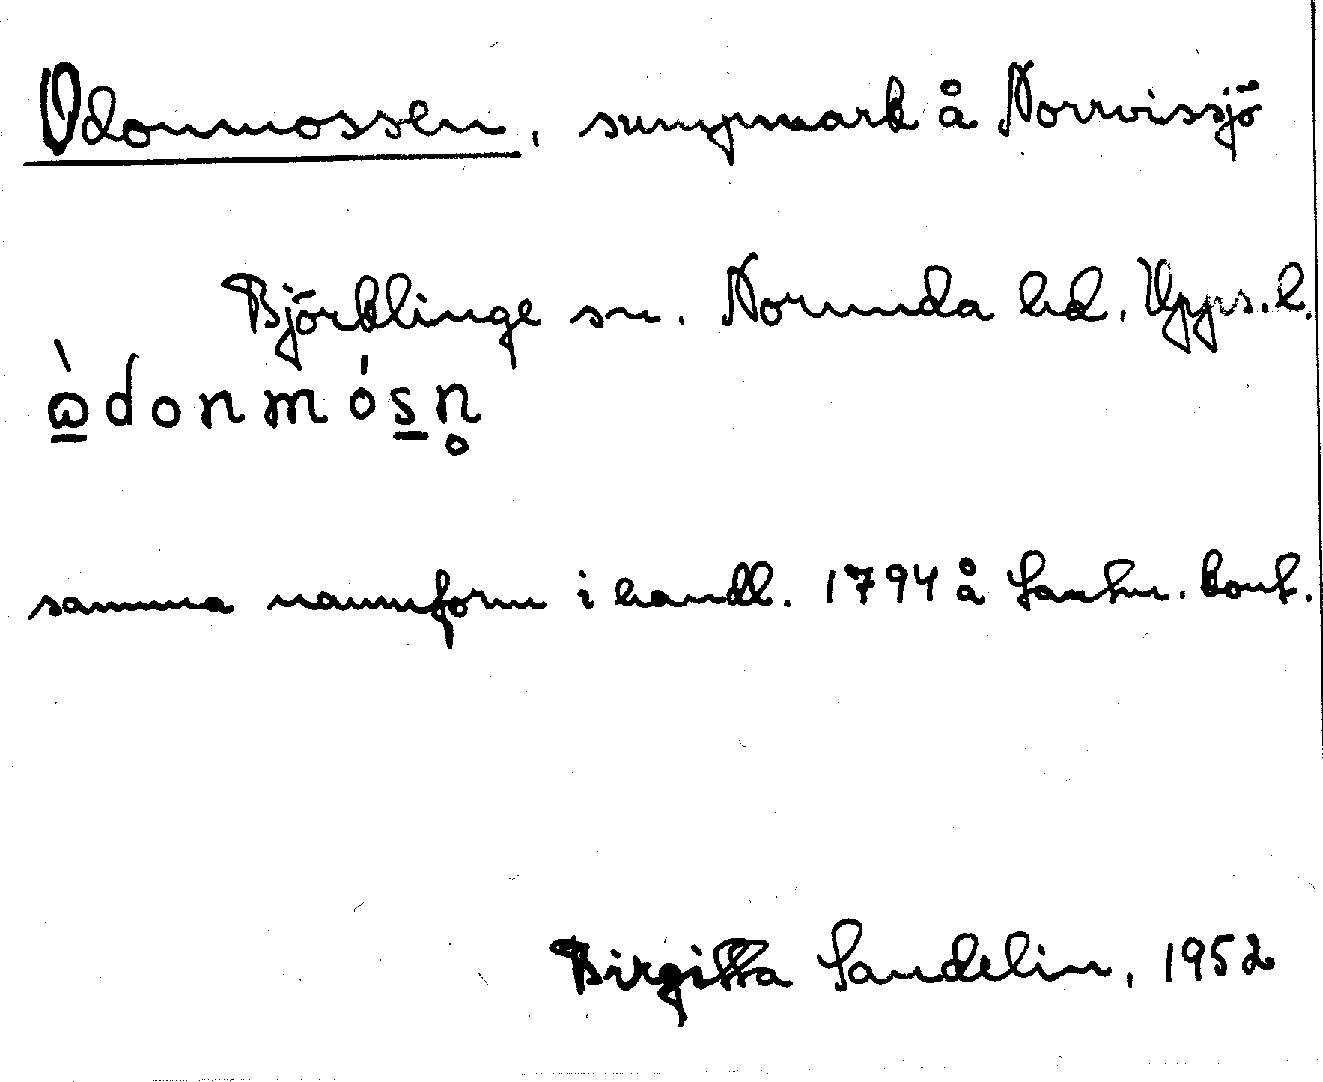 Odonmossen, sumpmark å Norrvissjö
Björklinge sn. Norunda hd. Upps. l.
ὼdonmósn̥
samma namnform i handl. 1794 å Lantm. kont.
Birgitta Sandelin, 1952